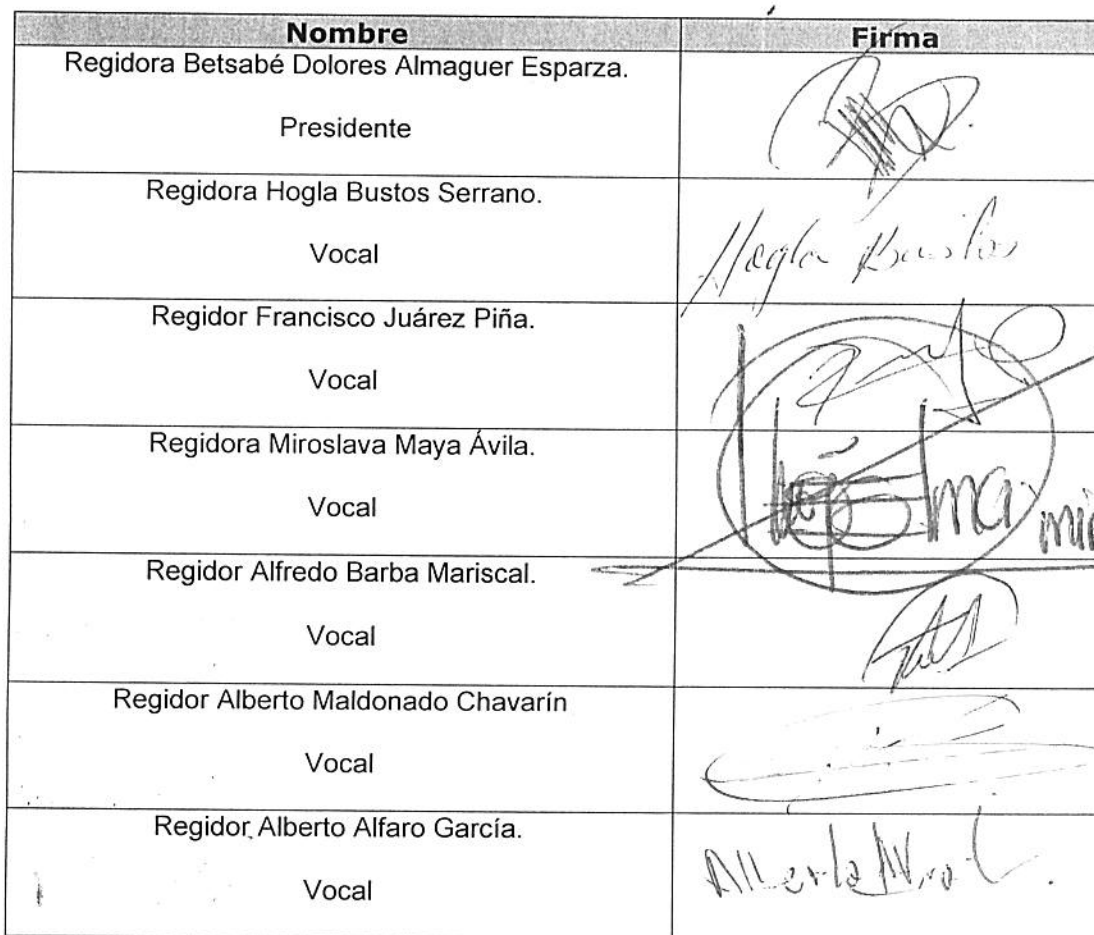 Nombre Firma
Regidora Betsabé Dolores Almaguer Esparza.
Presidente
Regidora Hogla Bustos Serrano.
Vocal
Hogla Bustos
Regidor Francisco Juárez Piña.
Vocal
Regidora Miroslava Maya Ávila.
Vocal
Regidor Alfredo Barba Mariscal.
Vocal
Regidor Alberto Maldonado Chavarín
Vocal
Regidor Alberto Alfaro García.
Vocal